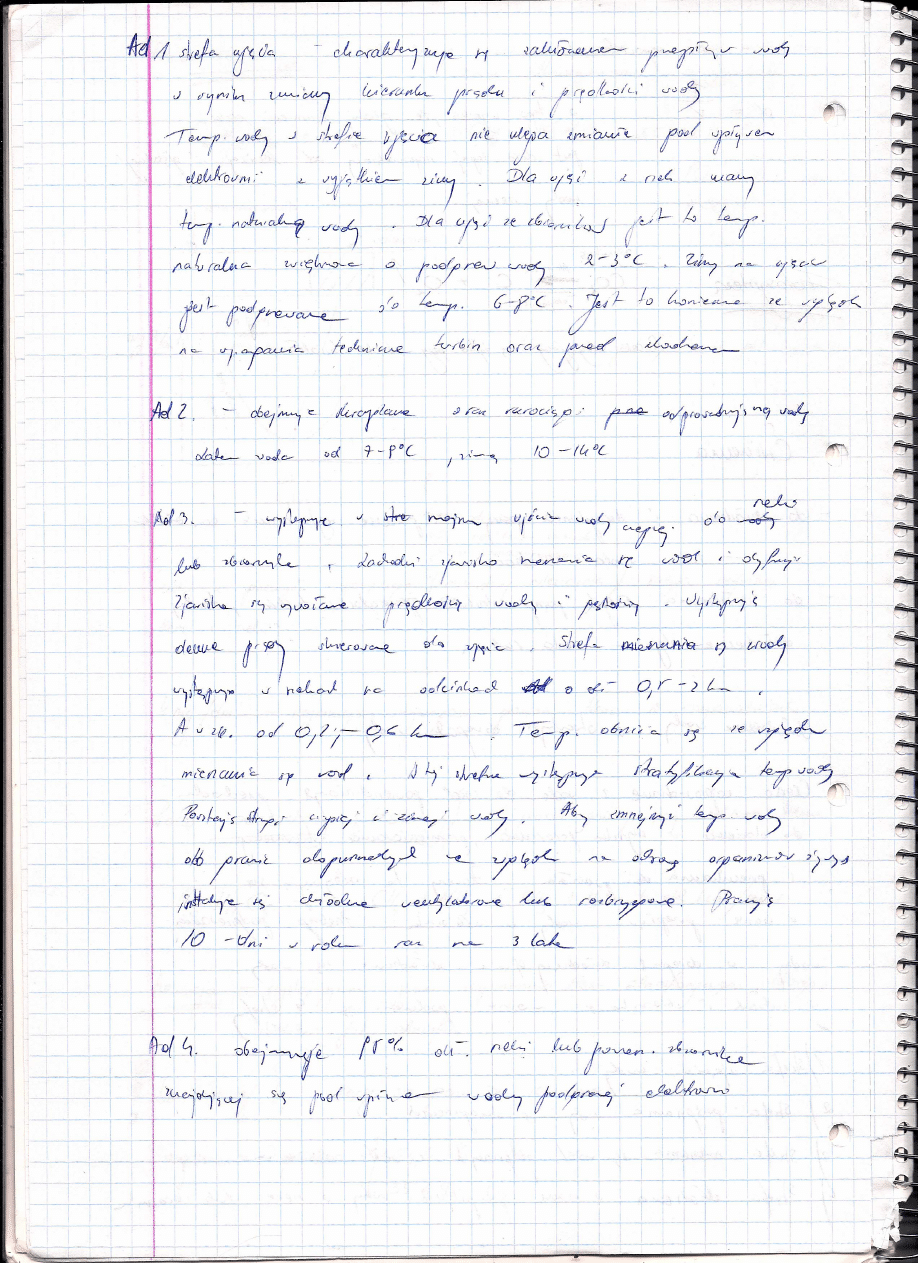 Ad 1 strefa ujęcia – charakteryzuje się zakłóceniem przepływu wody
w wyniku zmiany kierunku prądu i prędkości wody
Temp. wody w strefie ujęcia nie ulega zmianie pod wpływem
elektrowni z wyjątkiem zimy. Dla ujęć z rzek mamy
temp. naturalną wody. Dla ujęć ze zbiorników jest to temp.
naturalna zwiększona o podgrzew wody 2-3°C. Zimą na ujęciu
jest podgrzewane do temp. 6-8°C. Jest to konieczne ze względu
na wymagania techniczne turbin oraz przed
Ad 2. – obejmuje skraplacze oraz rurociągi odprowadzające wody
Latem woda od 7-9°C, zimą 10-14°C
Ad 3. – występuje w str miejscu ujścia wody ciepłej do wody rzeki
lub zbiornika. Zachodzi zjawisko mieszania się wód i dyfuzji
Zjawiska są wywołane prędkością wody i gęstością. Występują
denne prądy skierowane do ujęcia. Strefa mieszania się wody
występuje w rzekach na odcinkach o dł 0,5-2 km.
A w zb. od 0,2,-0,6 km. Temp. obniża się ze względu
mieszania się wód. W tej strefie występuje stratyfikacja temp wody
Powstają strugi ciepłej i zimnej wody. Aby zmniejszyć temp. wody
do granic dopuszczalnych ze względu na ochronę organizmów żywych
instaluje się chłodnie wentylatorowe lub rozbryzgowe. Pracują
10 -dni w roku raz na 3 lata
Ad 4. obejmuje 95% dł. rzeki lub powierz. zbiornika
znajdującej się pod wpływem wody podgrzanej elektrowni